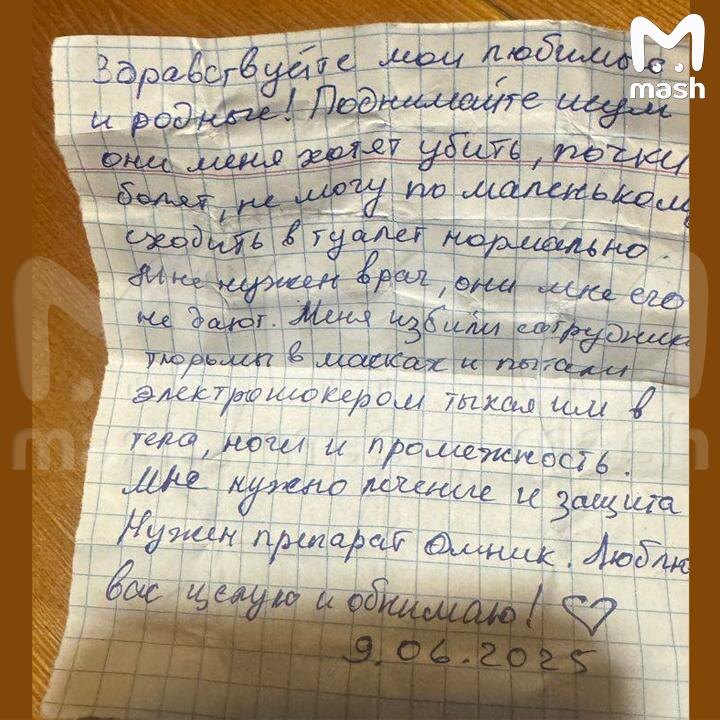 mash
Здравствуйте мои любимые
и родные! Поднимайте шум
они меня хотят убить, почки
болят, не могу по маленькому
сходить в туалет нормально.
Мне нужен врач, они мне его
не дают. Меня избили сотрудник
тюрьмы в масках и пытали
электрошокером тыкая им в
тела, ноги и промежность.
Мне нужно лечение и защита
Нужен препарат Омник. Люблю
вас целую и обнимаю!
9.06.2025